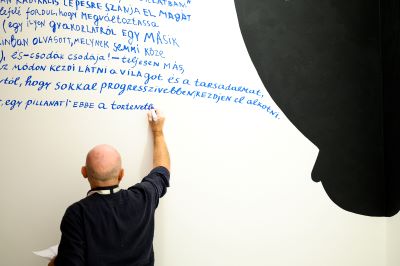 RADIKÁLIS LÉPÉSRE SZÁNJA EL MAGÁT
FELÉ FORDUL, HOGY MEGVÁLTOZTASSA
(EGY ILYEN GYAKORLATRÓL EGY MÁSIK
OLVASOTT, MELYNEK SEMMI KÖZE
), ÉS - CSODÁK CSODÁJA! - TELJESEN MÁS,
MÓDON KEZDI LÁTNI A VILÁGOT ÉS A TÁRSADALMAT,
HOGY SOKKAL PROGRESSZÍVEBBEN KEZDJEN EL ALKOTNI.
EGY PILLANATIG EBBE A TÖRTÉNETB